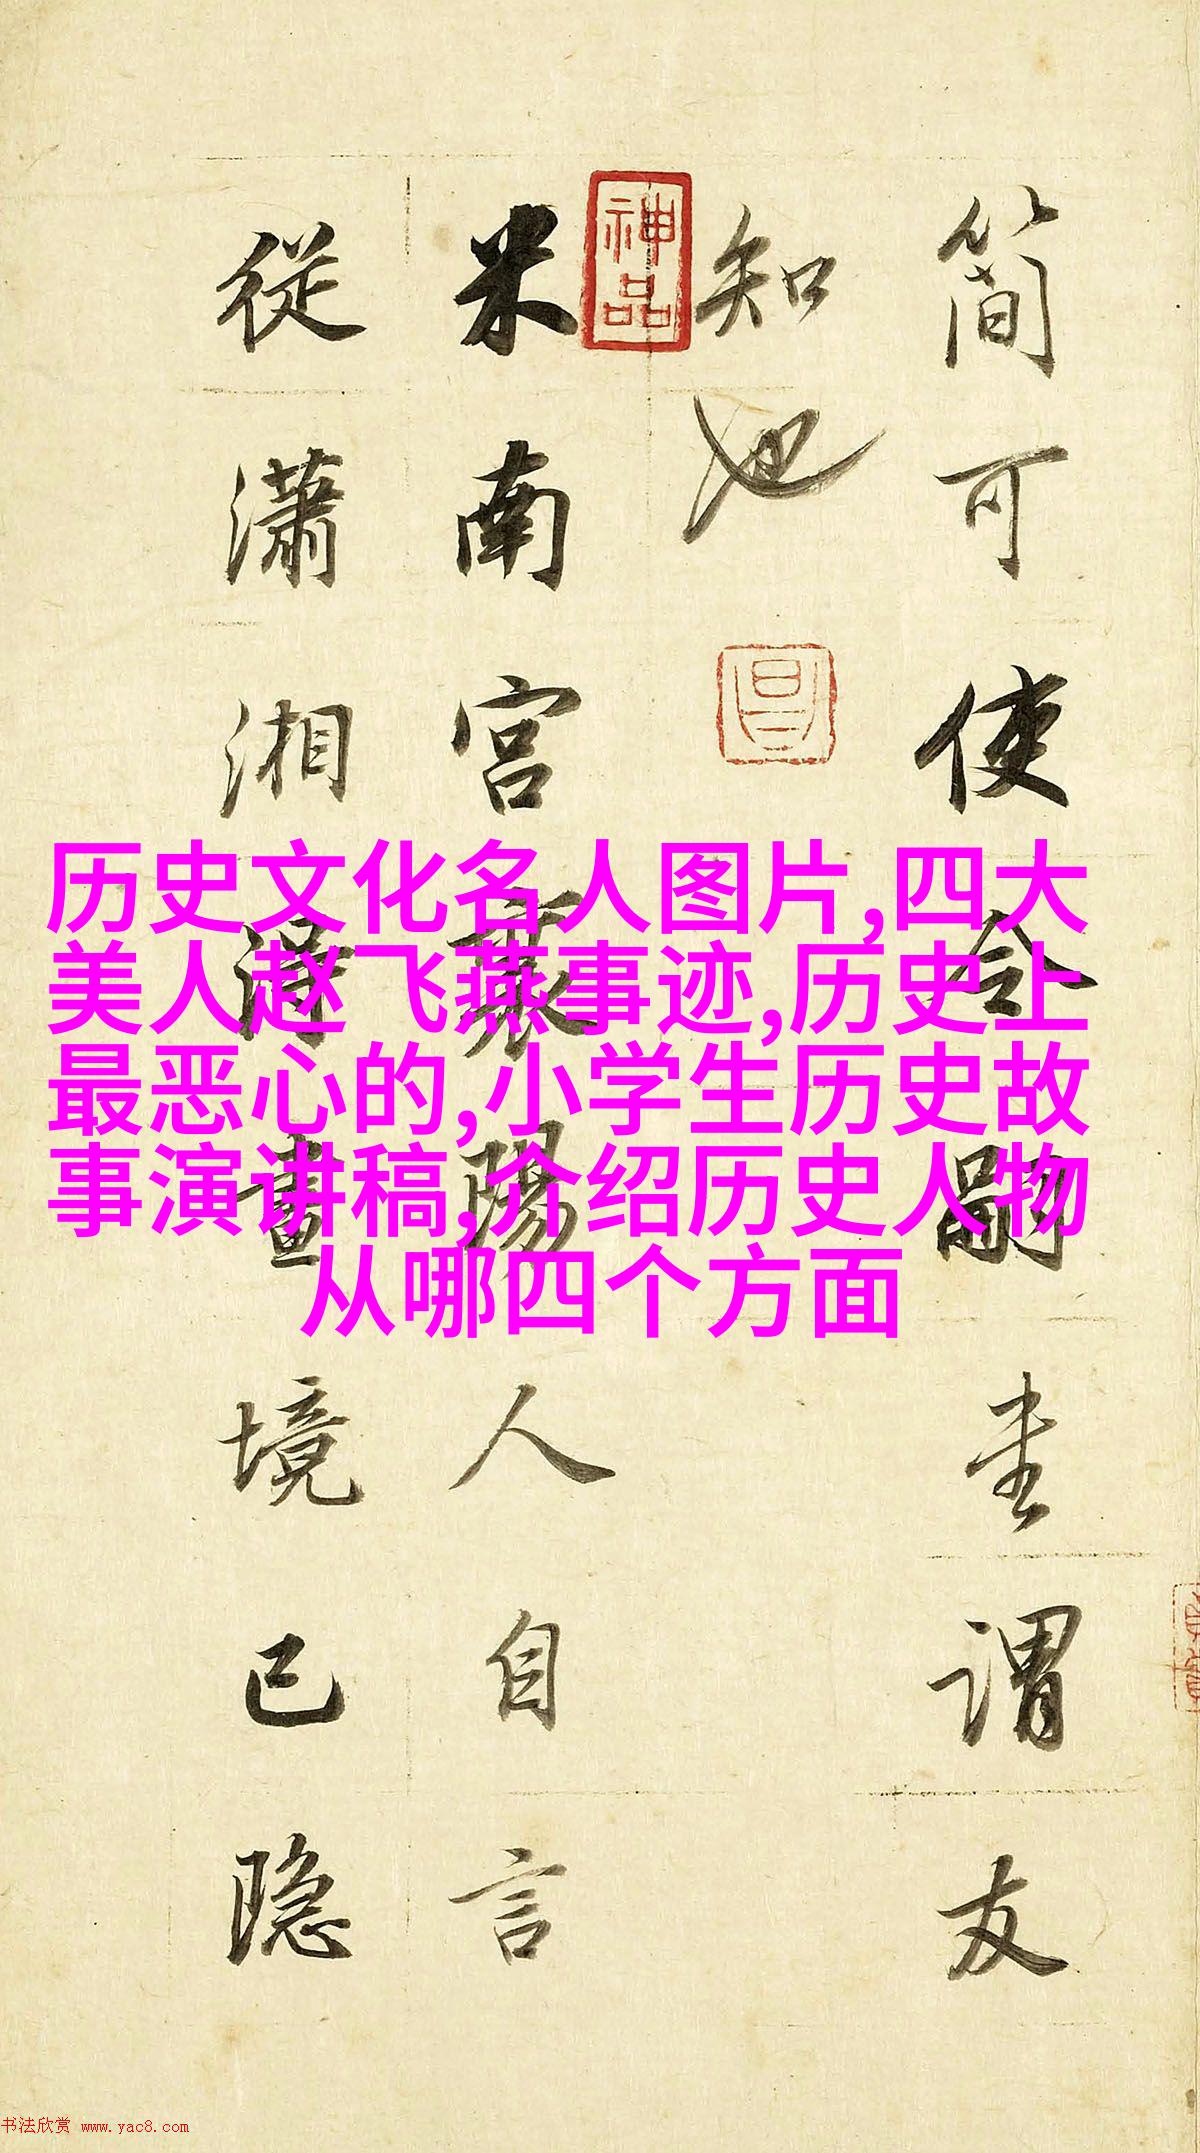 簡可使令嗣
謂友
知也
神品
米南宮襄陽人自言
從瀟湘得畫境已隱
历史文化名人图片,四大
美人赵飞燕事迹,历史上
最恶心的,小学生历史故
事演讲稿,介绍历史人物
从哪四个方面
书法欣赏 www.yac8.com